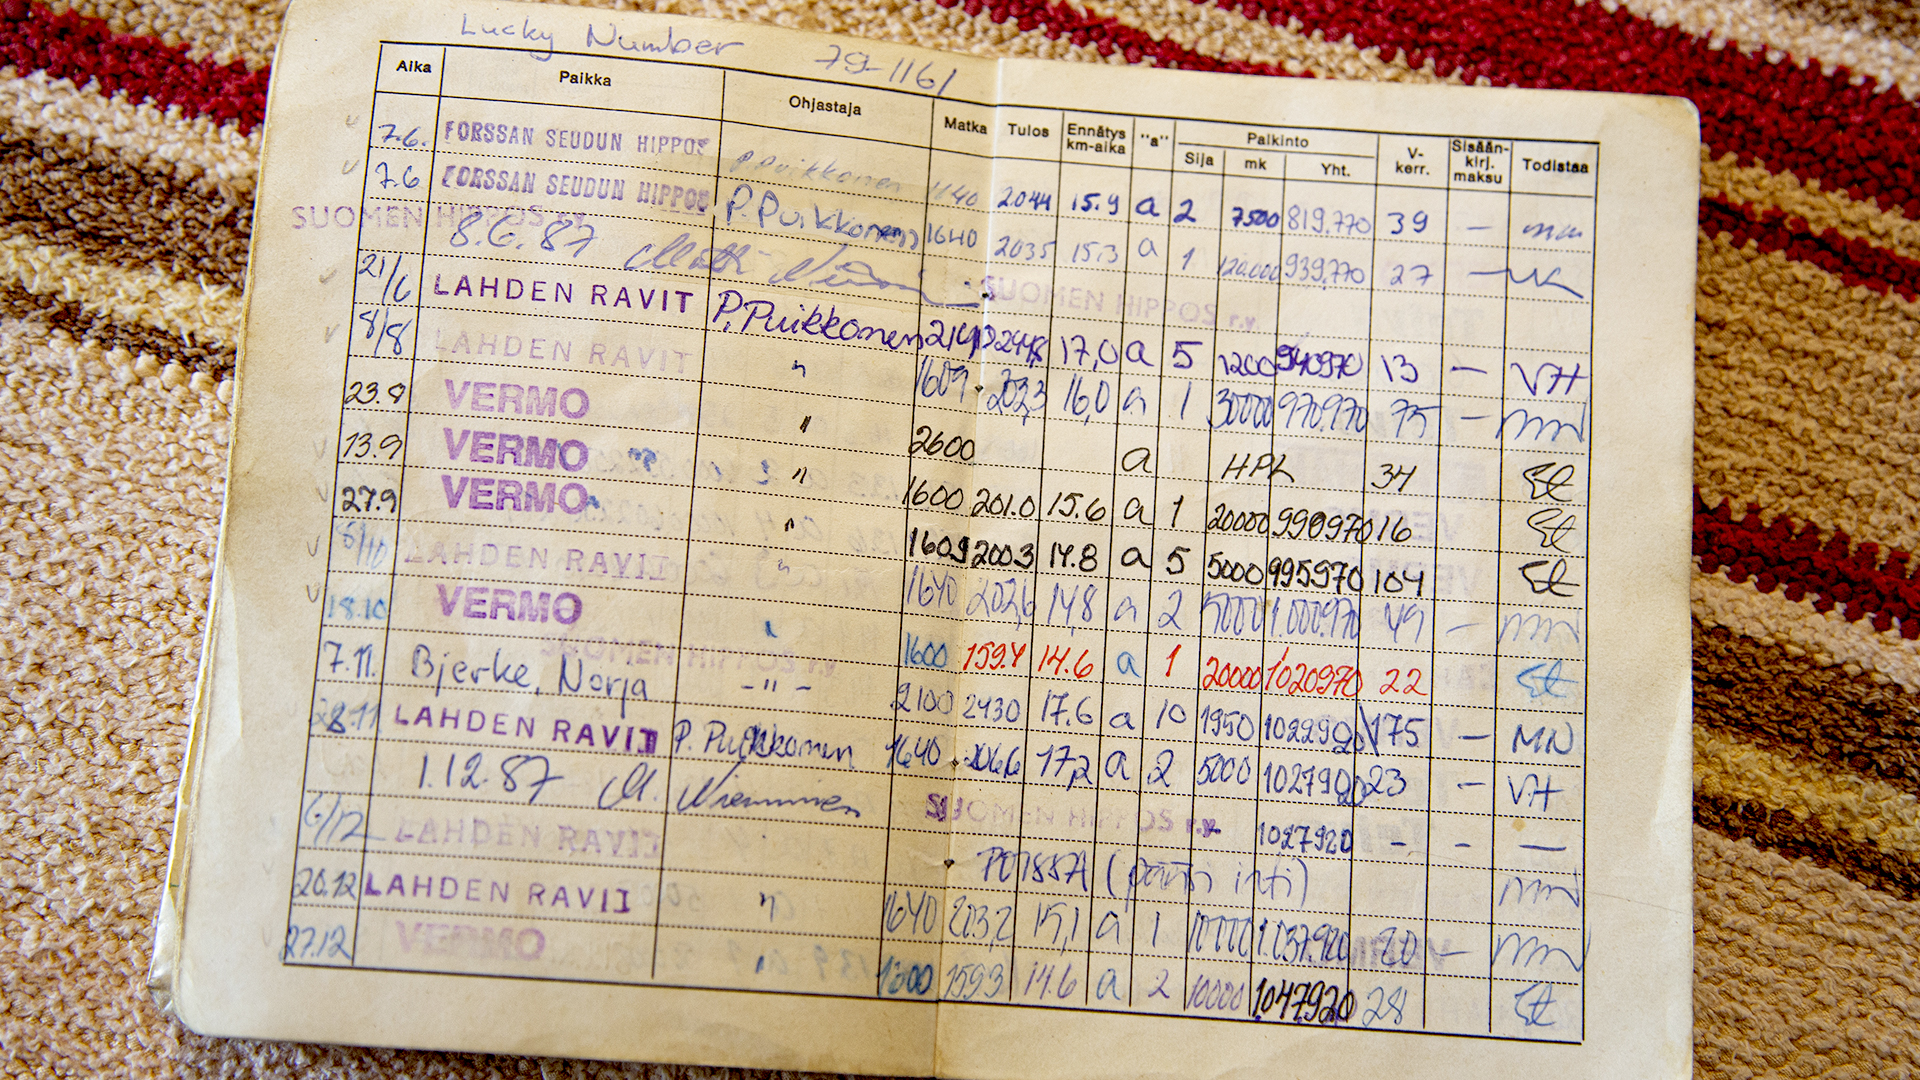 Lucky Number 79-1161
Aika Paikka Ohjastaja Matka Tulos Ennätys km-aika "a" Palkinto Sija mk Yht. V-kerr. Sisään-kirj. maksu Todistaa
7.6. FORSSAN SEUDUN HIPPOS P. Puikkonen 1140 2044 15.9 a 2 7500 819.770 39 —
7.6 FORSSAN SEUDUN HIPPOS P. Puikkonen 1640 2035 15.3 a 1 120.000 939.770 27 —
SUOMEN HIPPOS r.y. 8.6.87 SUOMEN HIPPOS r.y.
21/6 LAHDEN RAVIT P. Puikkonen 2140 17,0 a 5 1200 940970 13 — VH
8/8 LAHDEN RAVIT " 1609 202,3 16,0 a 1 30000 970.970 75 —
23.8 VERMO " 2600 a HPL 34
13.9 VERMO " 1600 201.0 15.6 a 1 20000 990970 16
27.9 VERMO " 1609 200.3 14.8 a 5 5000 995970 104
LAHDEN RAVIT " 1640 202,6 14,8 a 2 5000 1.000.970 49 —
18.10 VERMO 1600 159.4 14.6 a 1 20000 1020970 22
SUOMEN HIPPOS r.y.
7.11. Bjerke, Norja - " - 2100 2430 17.6 a 10 1950 1022920 175 — MN
28.11 LAHDEN RAVIT P. Puikkonen 1640 206,6 17,2 a 2 5000 1027920 23 — VH
1.12.87 M. Nieminen SUOMEN HIPPOS r.y. 1027920 — - —
6/12 LAHDEN RAVIT POISSA
20.12 LAHDEN RAVIT " 1640 203,2 15,1 a 1 10000 1.037.920 20 —
27.12 VERMO " 1600 1593 14.6 a 2 10000 1.047.920 28